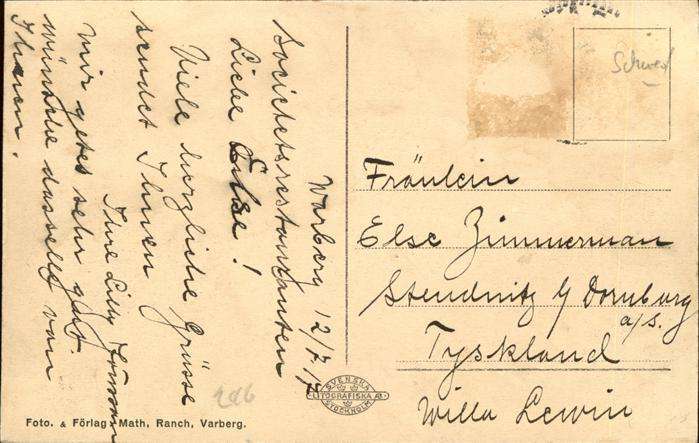 Warberg 12/7 17
Societetsrestauranten
Liebe Else!
Viele herzliche Grüsse
sendet Ihnen
Ihre Lilly
Mir getes sehr gut
wünsche dasselbe von
Ihnen.
Schwed
Fräulein
Else Zimmerman
Stendnitz b/ Dornburg
a/S.
Tyskland
Willa Lewin
296
SVENSKA
LITOGRAFISKA AB
STOCKHOLM
Foto. & Förlag Math. Ranch, Varberg.